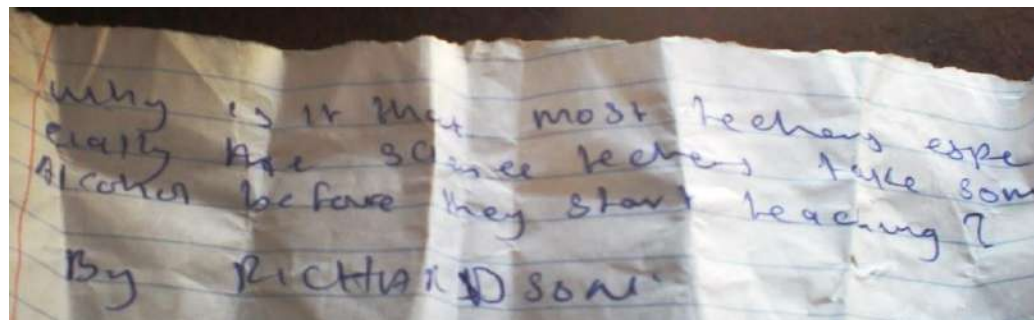 Why is it that most techers espe
cially the science techers take som
Alcohol before they start teaching?
By RICHARDSON